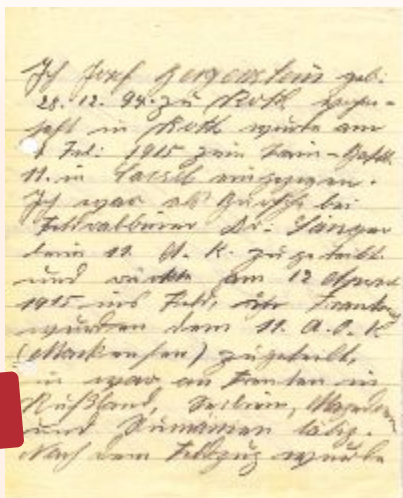 Ich Josef Gergenstein geb:
28.12.94 zu Roth wohn-
haft in Roth wurde am
Feb: 1915 zum Train-Batl.
11. in Cassel eingezogen.
Ich war als Bursche bei
Dr.
dem 11. A. K. zugeteilt
und rückte am 12 April
1915 ins Feld, Train
wurden dem 11. A.O.K
(Mackensen) zugeteilt,
war an Fronten in
Rußland, Serbien,
und Rumänien tätig.
Nach dem Feldzug wurde